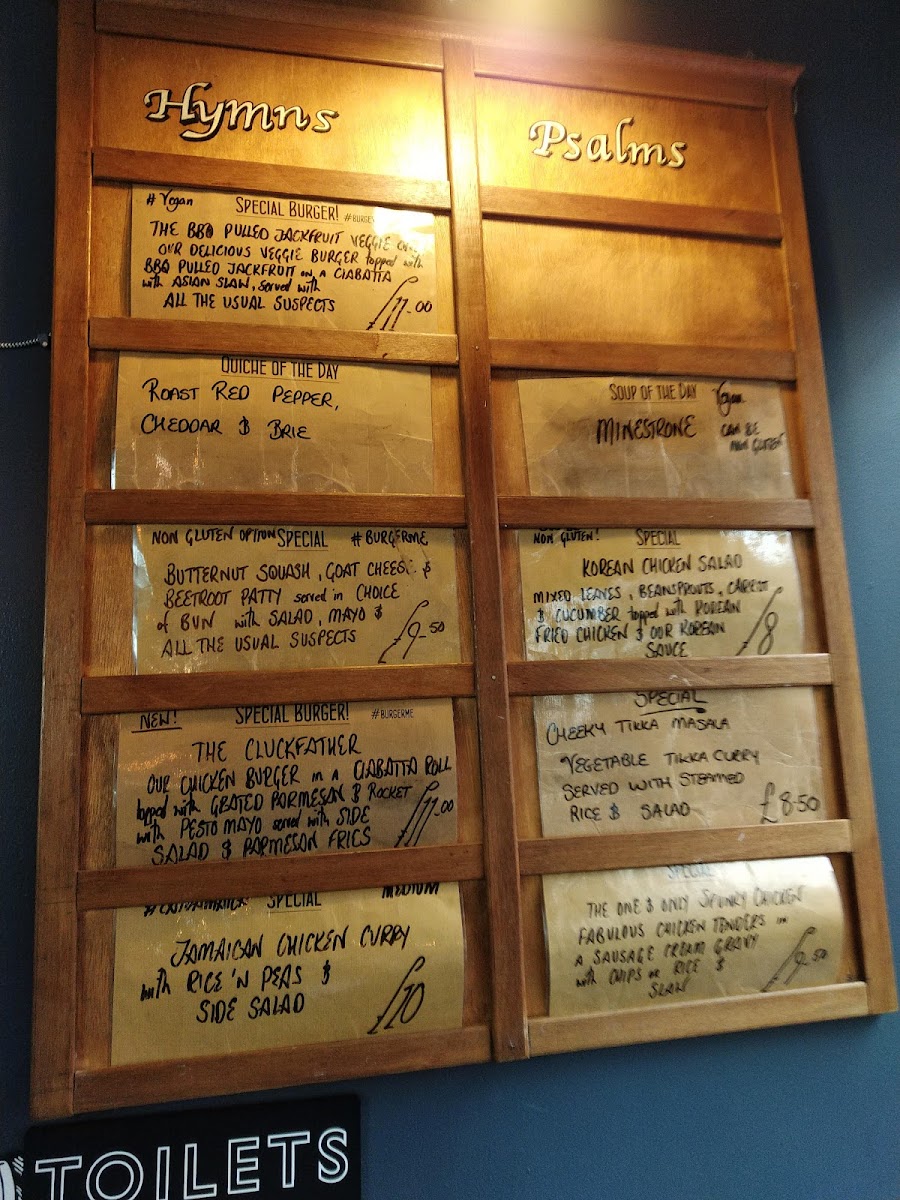 Hymns
# Vegan
SPECIAL BURGER!
THE BBQ PULLED JACKFRUIT VEGGIE
OUR DELICIOUS VEGGIE BURGER topped with
BBQ PULLED JACKFRUIT on a CIABATTA
with ASIAN SLAW, served with
ALL THE USUAL SUSPECTS
£11.00
QUICHE OF THE DAY
ROAST RED PEPPER,
CHEDDAR & BRIE
NON GLUTEN OPTION SPECIAL #BURGERME
BUTTERNUT SQUASH, GOAT CHEESE &
BEETROOT PATTY served in CHOICE
of BUN with SALAD, MAYO &
ALL THE USUAL SUSPECTS
£9.50
NEW! SPECIAL BURGER! #BURGERME
THE CLUCKFATHER
OUR CHICKEN BURGER in a CIABATTA ROLL
topped with GRATED PARMESAN & ROCKET
with PESTO MAYO served with SIDE
SALAD & PARMESAN FRIES
£11.00
SPECIAL MEDIUM
JAMAICAN CHICKEN CURRY
with RICE 'N PEAS &
SIDE SALAD
£10
Psalms
SOUP OF THE DAY Vegan
MINESTRONE CAN BE
NON GLUTEN
NON GLUTEN! SPECIAL
KOREAN CHICKEN SALAD
MIXED LEAVES, BEANSPROUTS, CARROT
& CUCUMBER topped with KOREAN
FRIED CHICKEN & OUR KOREAN
SAUCE
£8
SPECIAL
CHEEKY TIKKA MASALA
VEGETABLE TIKKA CURRY
SERVED WITH STEAMED
RICE & SALAD
£8.50
SPECIAL
THE ONE & ONLY SPUNKY CHICKEN
FABULOUS CHICKEN TENDERS in
A SAUSAGE CREAM GRAVY
with CHIPS or RICE &
SLAW
£9.50
TOILETS